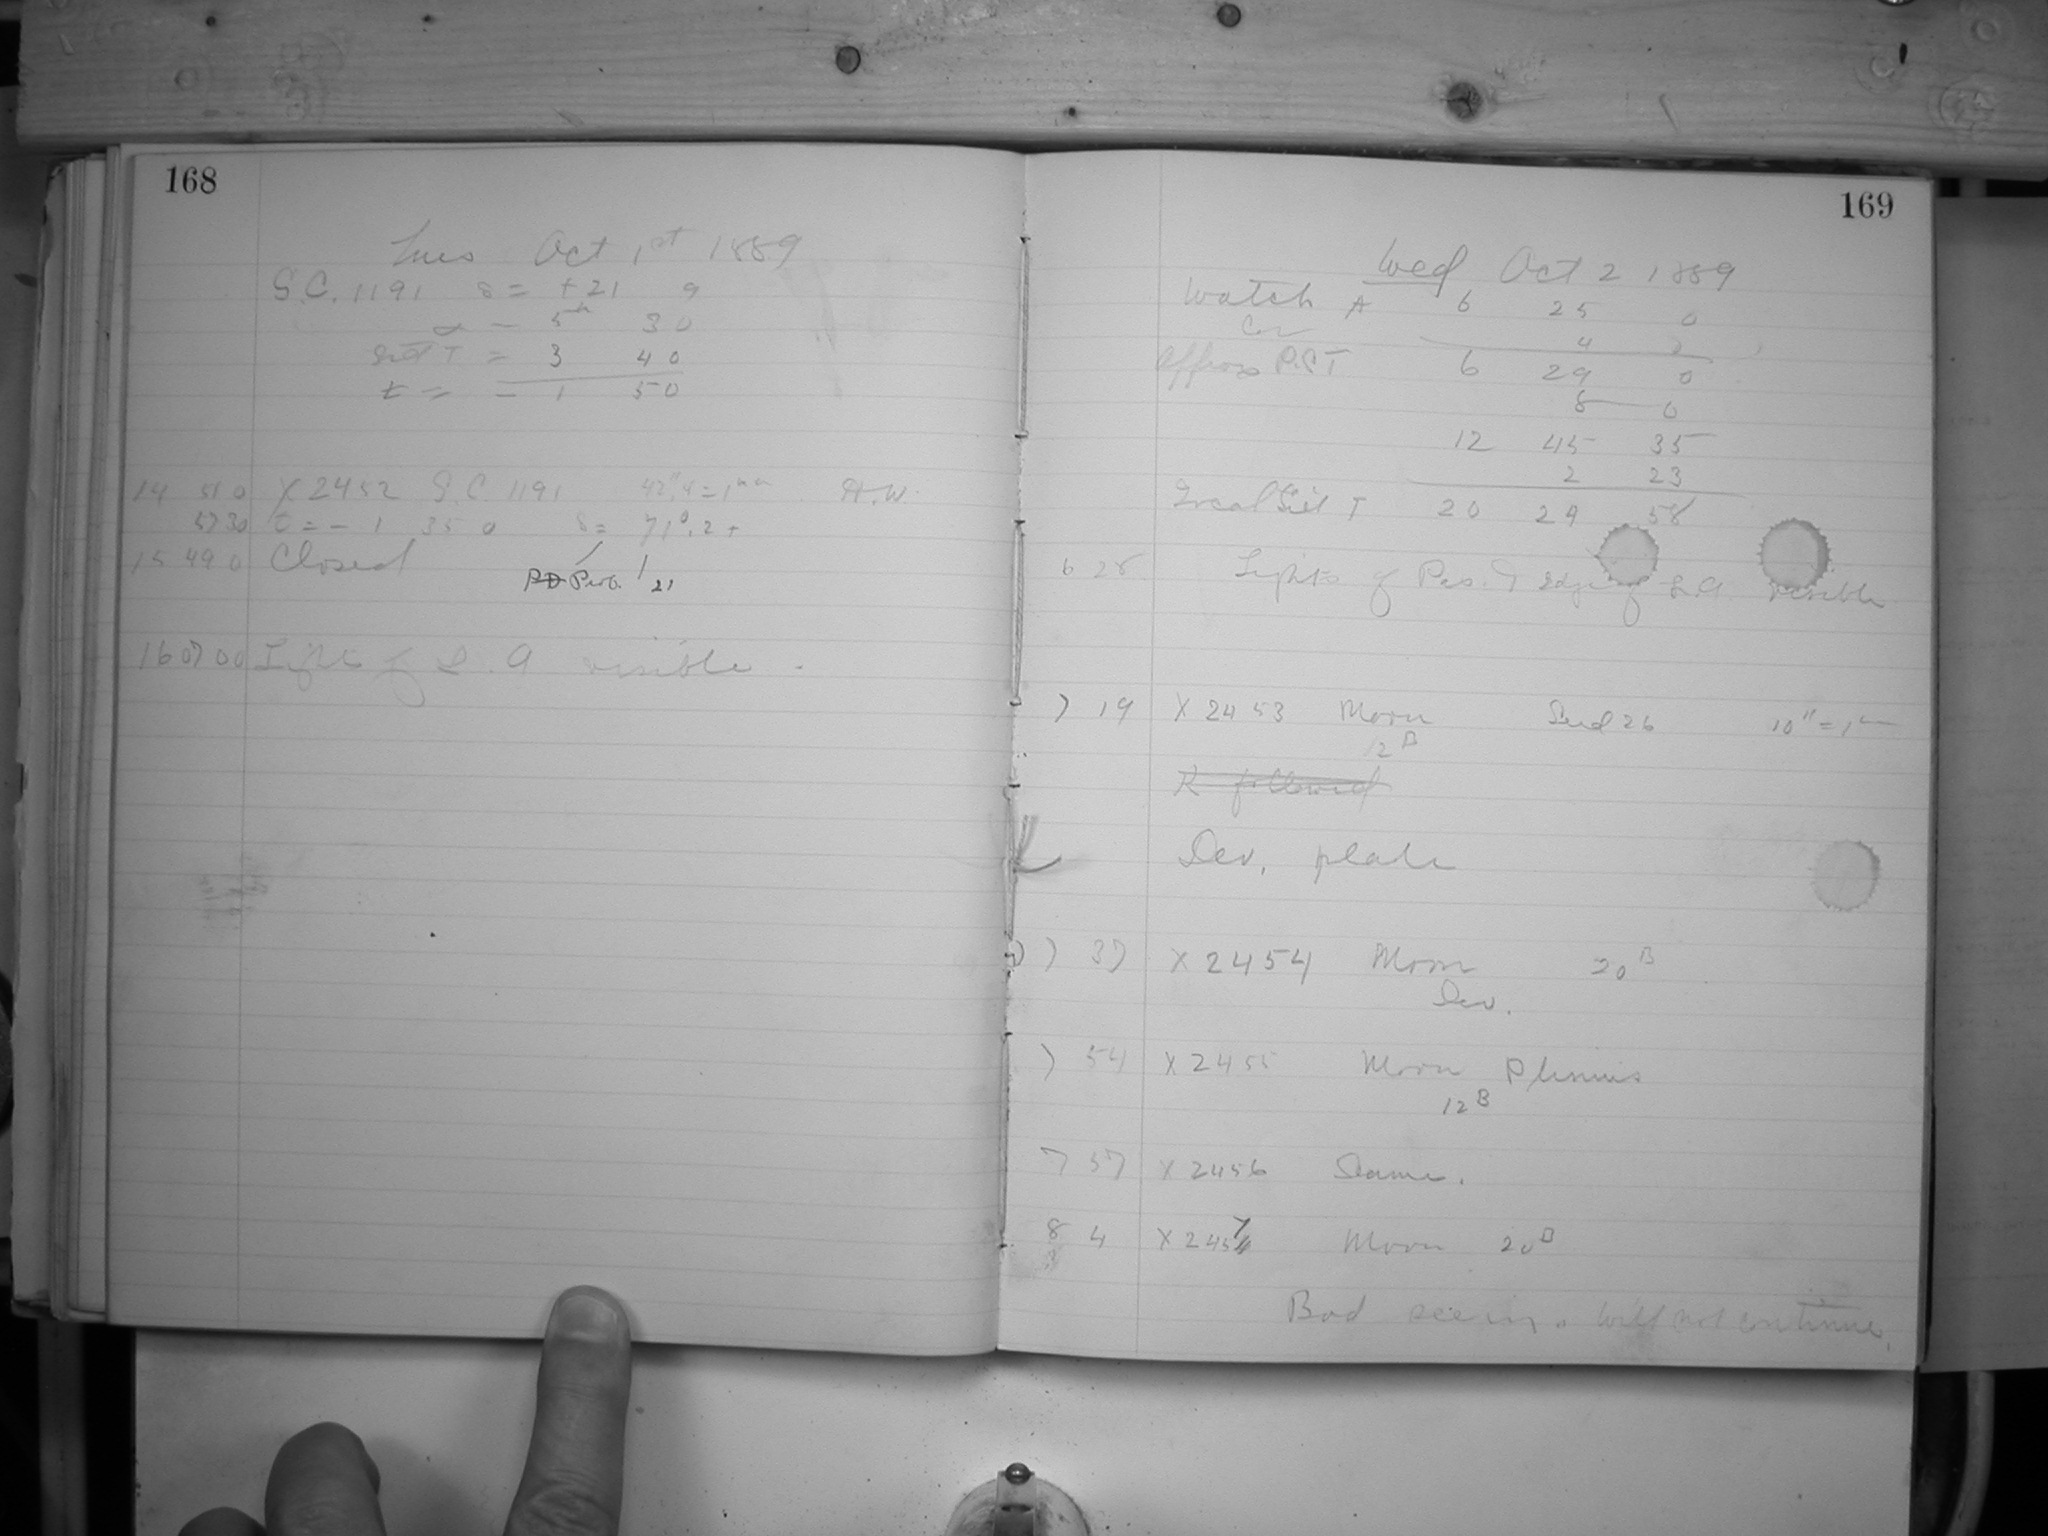 168
Tues Oct 1st 1889
S.C. 1191 δ = +21 9
α = 5h 30
Sid T = 3 40
t = - 1 50
14 51 0 X 2452 S.C. 1191 42".4 = 1mm H.W.
57 30 t = - 1 35 0 δ = 71°.2 +
15 49 0 Closed
Prob. 21
16 07 00 Lights of L. A visible.
169
Wed Oct 2 1889
Watch A 6 25 0
Cor 4 0
Approx P.S.T 6 29 0
8 0
12 45 35
2 23
Local Sid T 20 29 58
6 28 Lights of Pas. & edge of L.A. visible
7 19 X 2453 Moon Seed 26 10" = 1
12 B
R followed
Dev. plate
7 37 X 2454 Moon 20 B
Dev.
7 54 X 2455 Moon Plinius
12 B
7 57 X 2456 Same.
8 4 X 2457 Moon 20 B
Bad seeing. Will not continue.